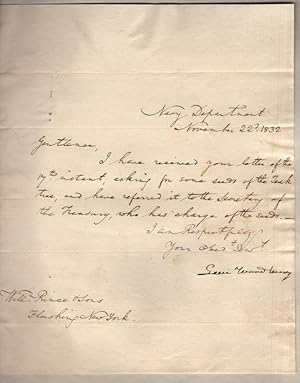 Navy Department
November 22d. 1832
Gentlemen,
I have received your letter of the
17th instant, asking for some seeds of the Teak
tree, and have referred it to the Secretary of
the Treasury, who has charge of the seeds.—
I am Respectfully
Your Obedt. Servt.
Levi Woodbury
Willm. Prince & Sons
Flushing New York.